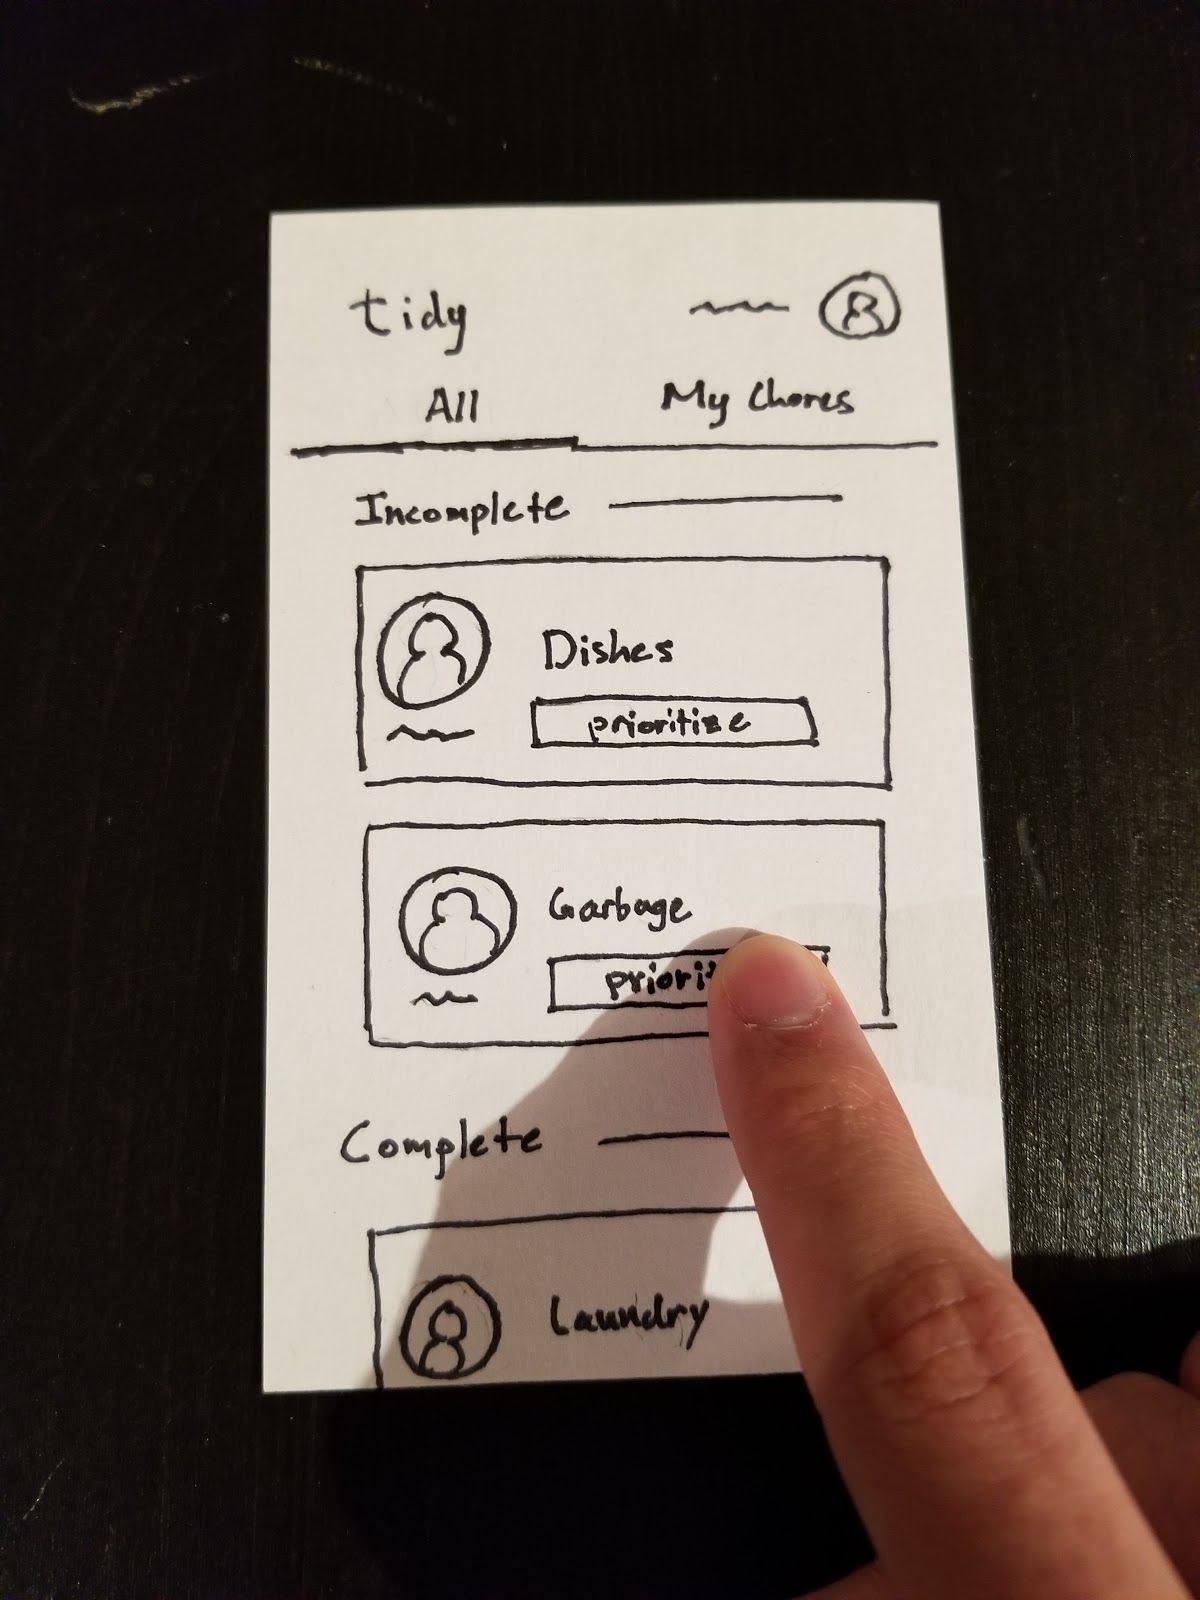 tidy
All My Chores
Incomplete
Dishes
prioritize
Garbage
priorit
Complete
Laundry